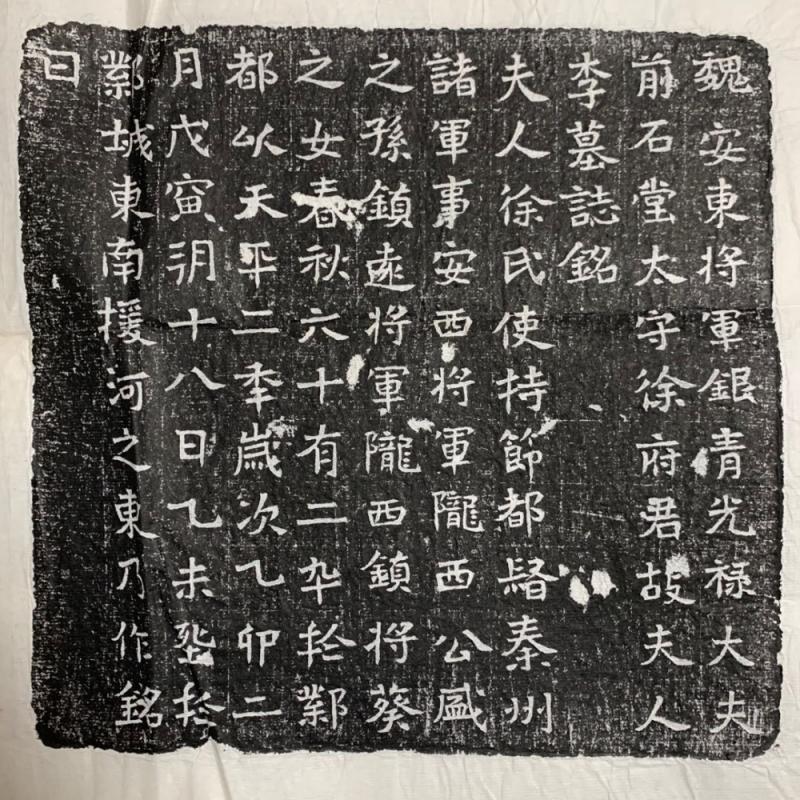 魏安東将軍銀青光祿大夫
前石堂太守徐府君故夫人
李墓誌銘
夫人徐氏使持節都督秦州
諸軍事安西将軍隴西公盛
之孫鎮遠将軍隴西鎮将葵
之女春秋六十有二卒於鄴
都以天平二年歲次乙卯二
月戊寅朔十八日乙未塟於
鄴城東南援河之東乃作銘
曰